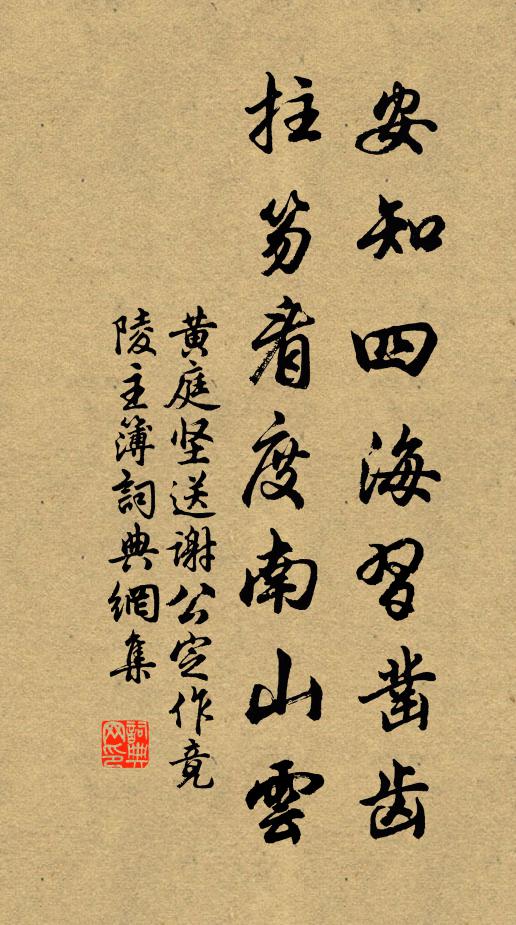 安知四海習鑿齒
拄笏看度南山雲
黄庭坚送谢公定作竟
陵主簿詞典網集
詞典
网印